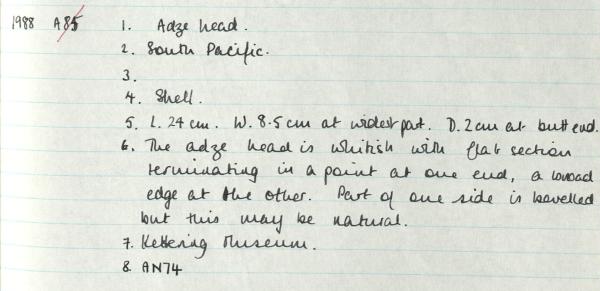 1988 A85 1. Adze head.
2. South Pacific.
3.
4. Shell.
5. L. 24 cm. W. 8.5 cm at widest part. D. 2 cm at butt end.
6. The adze head is whitish with flat section
terminating in a point at one end, a broad
edge at the other. Part of one side is bevelled
but this may be natural.
7. Kettering Museum.
8. AN74